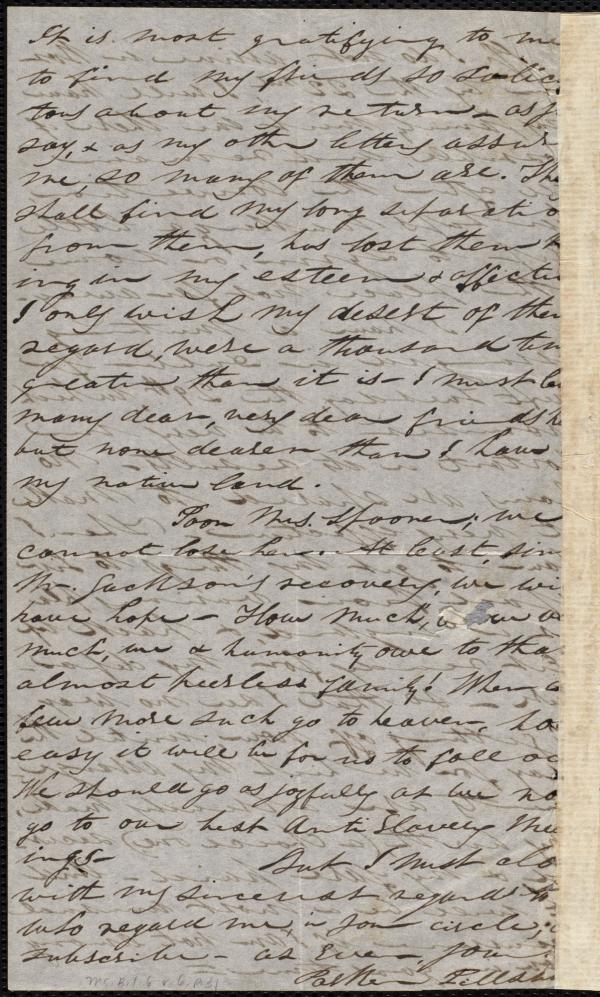 It is most gratifying to me
to find my friends so solic
tous about my return - as y
say, & as my other letters assur
me, so many of them are. The
shall find my long separatio
from them, has lost them n
ing in my esteem & affectio
I only wish my desert of thei
regard, were a thousand tim
greater than it is - I must le
many dear, very dear friends he
but none dearer than I have
my native land.
Poor Mrs. Spooner; we
cannot lose her. At least, sin
Mr. Jackson's recovery, we wi
have hope - How much,
much, we & humanity owe to tha
almost peerless family! When a
few more such go to heaven, ho
easy it will be for us to follow
We should go as joyfully as we no
go to our best Anti Slavery Mee
ings -
But I must clo
with my sincerest regard to
who regard me, in your circle,
subscribe - as Ever, your
Parker Pillsb
Ms. B. 1. 6 v. 6, p. 31